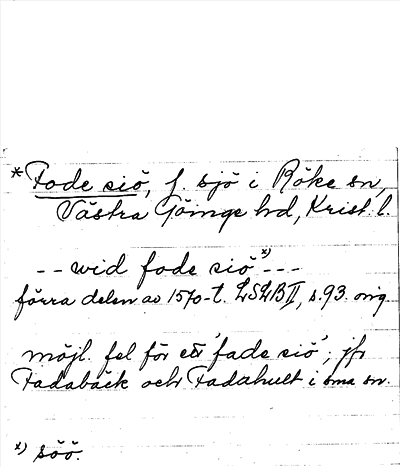 * Fode siö, f. sjö i Röke sn,
Västra Göinge hd, Krist. l.
-- wid fode siö x) ---
förra delen av 1570-t. LSLB II, s. 93. orig.
möjl. fel för ett 'fade siö', jfr
Fadabäck och Fadahult i sma sn.
x) söö.